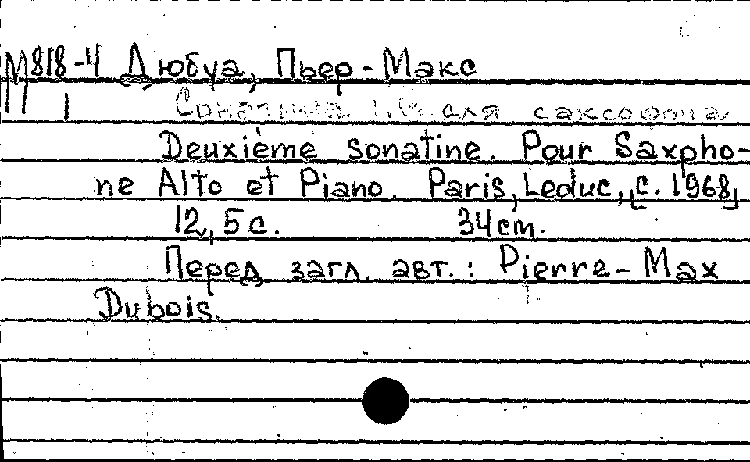 М818-4 Дюбуа, Пьер-Макс
1 Сонатина для саксофона
Deuxième sonatine. Pour Saxpho-
ne Alto et Piano. Paris, Leduc, [c. 1968]
12, 5 с. 34 cm.
Перед загл. авт.: Pierre-Max
Dubois.